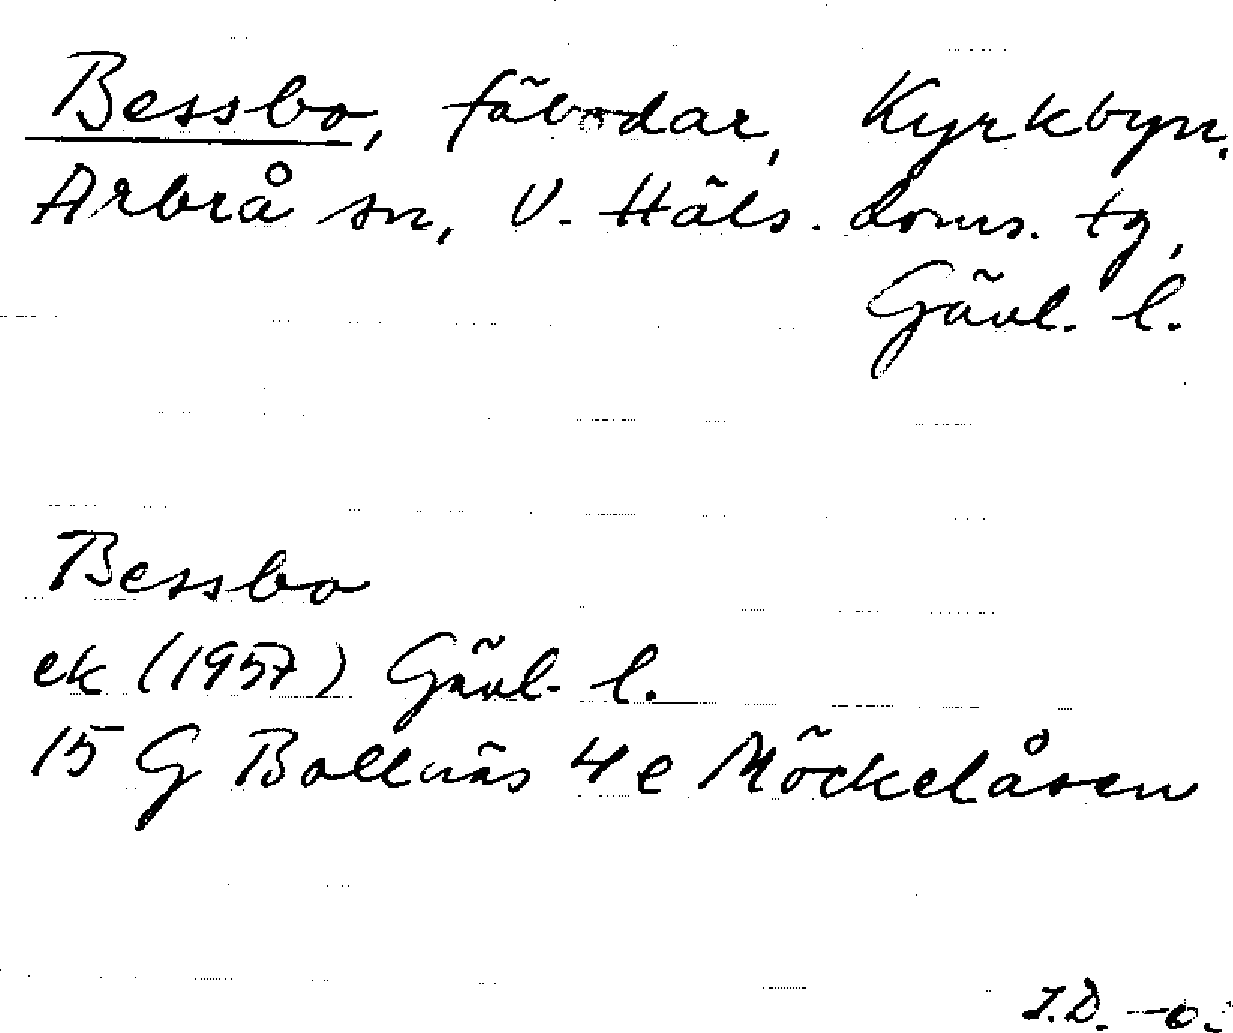 Bessbo, fäbodar, Kyrkbyn.
Arbrå sn, V. Häls. doms. tg,
Gävl. l.
Bessbo
ek (1957) Gävl. l.
15 G Bollnäs 4 e Möckelåsen
I.D. -o.